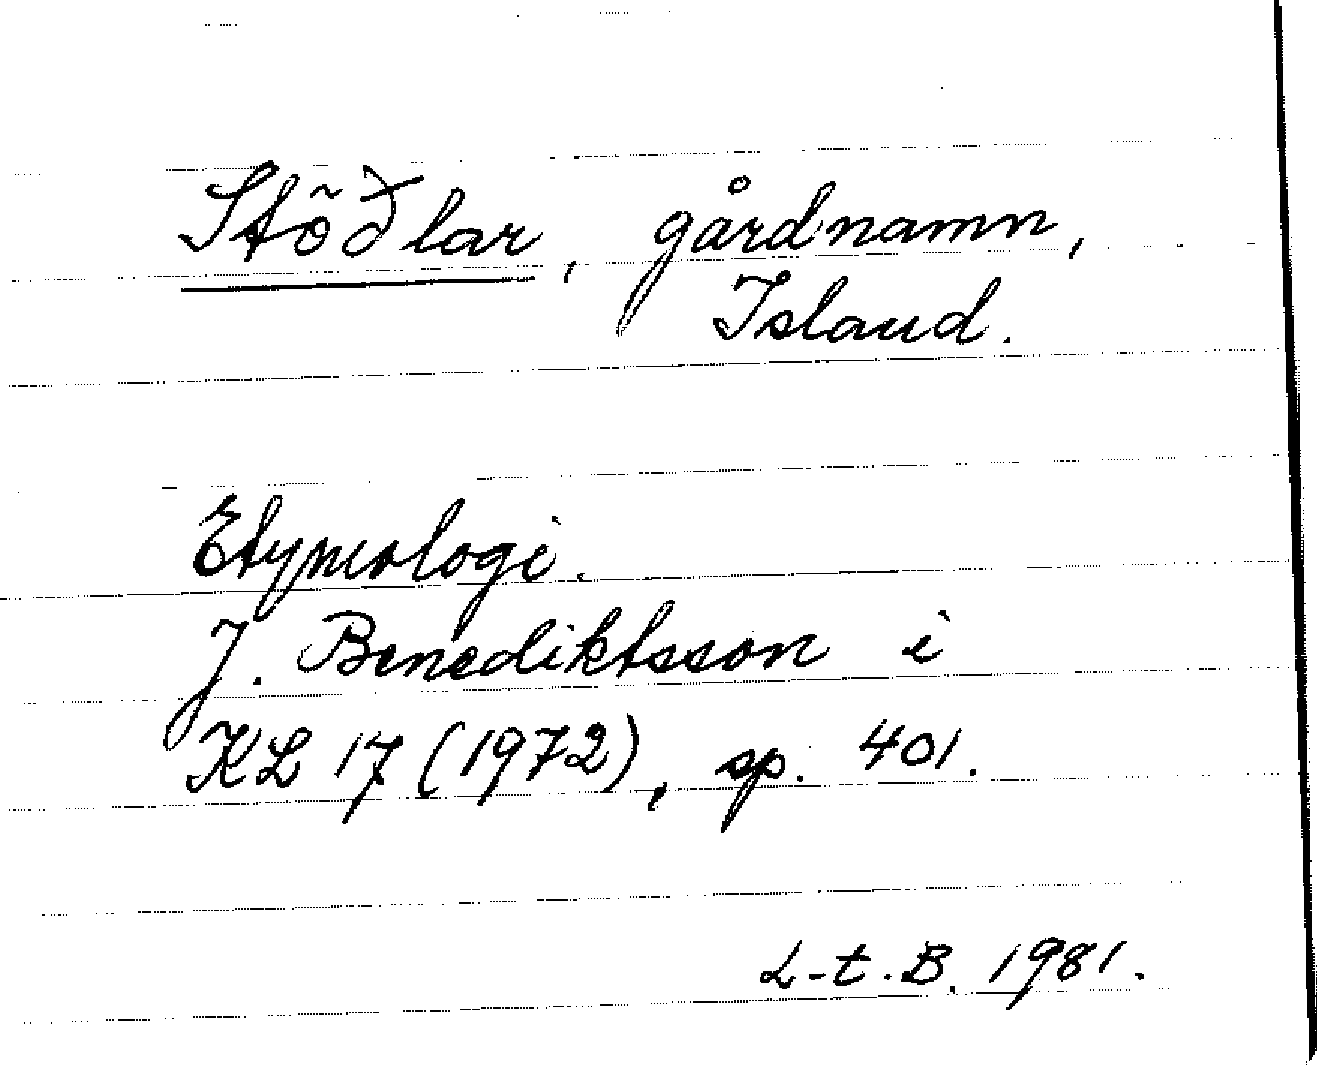 Stöðlar, gårdnamn,
Island.
Etymologi.
J. Benediktsson i
KL 17 (1972), sp. 401.
L-t. B. 1981.